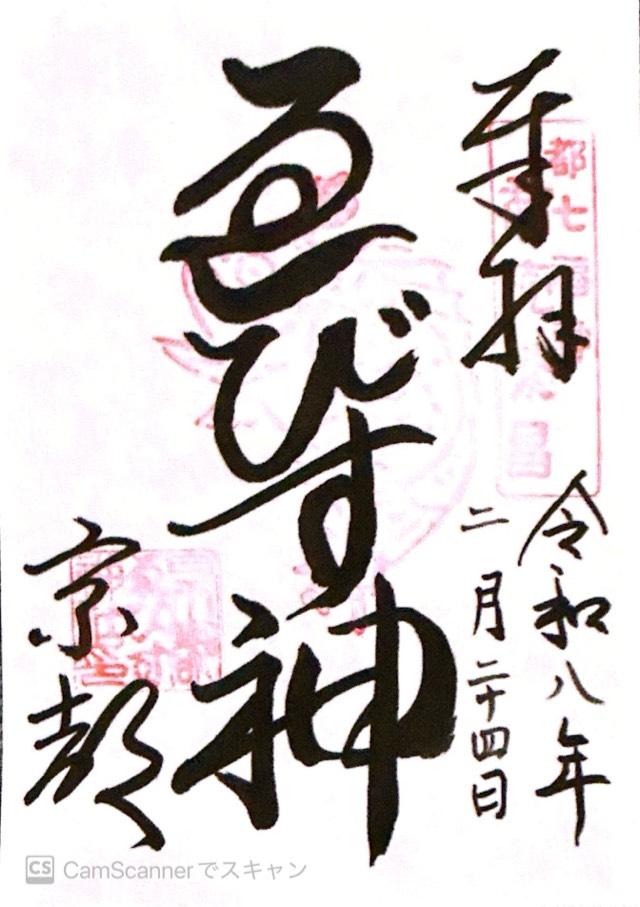 奉拝
令和八年
二月二十四日
ゑびす神
京都
CS CamScannerでスキャン